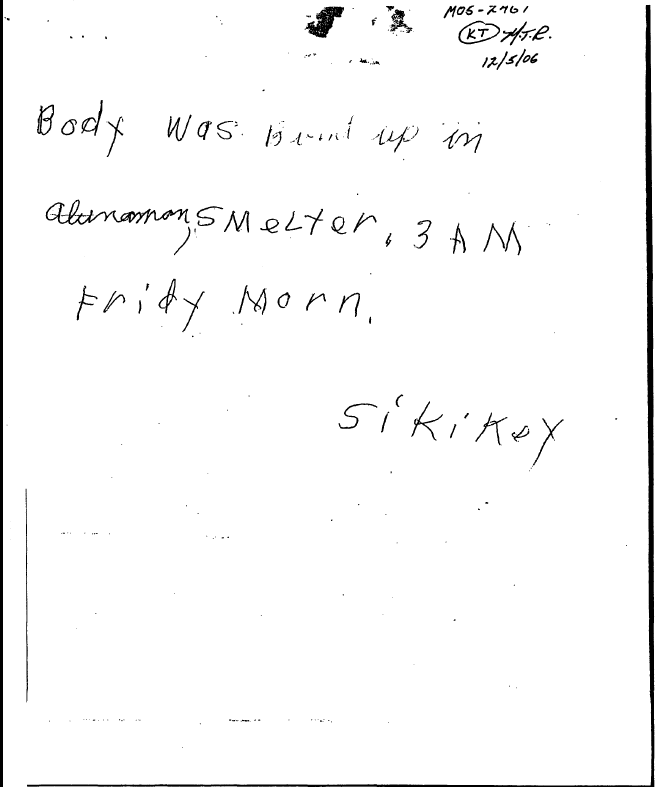 M06-2961
KT H.T.R.
12/5/06
Body was Burnt up in
alunamon, SMeLter, 3 AM
Fridy Morn.
Sikikey